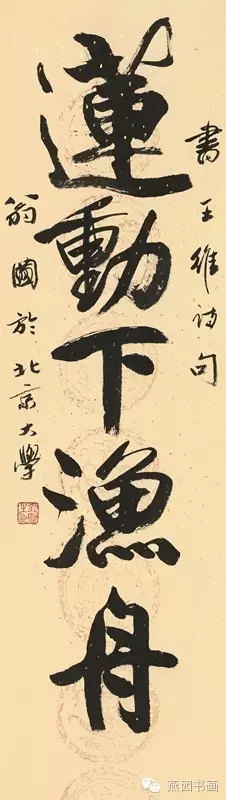 書王維詩句
蓮動下漁舟
翁圖於北京大學
燕园书画